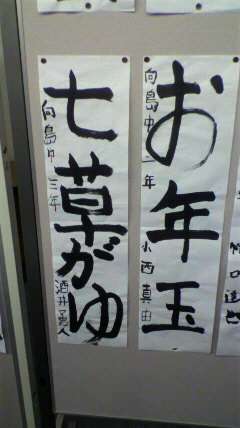 お年玉
向島中 二年 小西真由
七草がゆ
向島中 三年
酒井